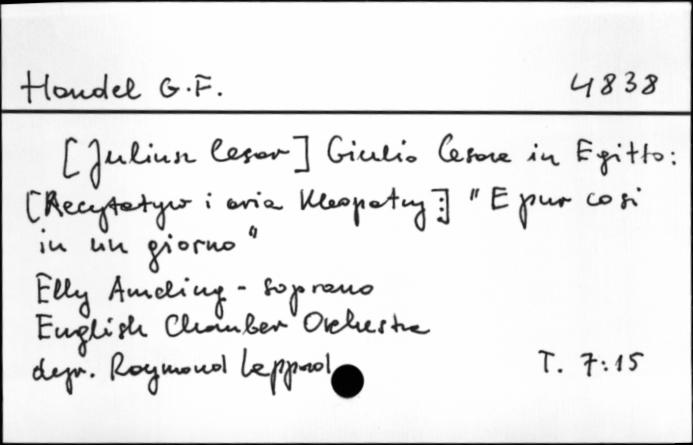 Händel G.F. 4838
[Juliusz Cesar] Giulio Cesare in Egitto:
[Recytatyw i aria Kleopatry:] "E pur cosi
in un giorno"
Elly Ameling - soprano
English Chamber Orchestra
dyr. Raymond Leppard T. 7:15